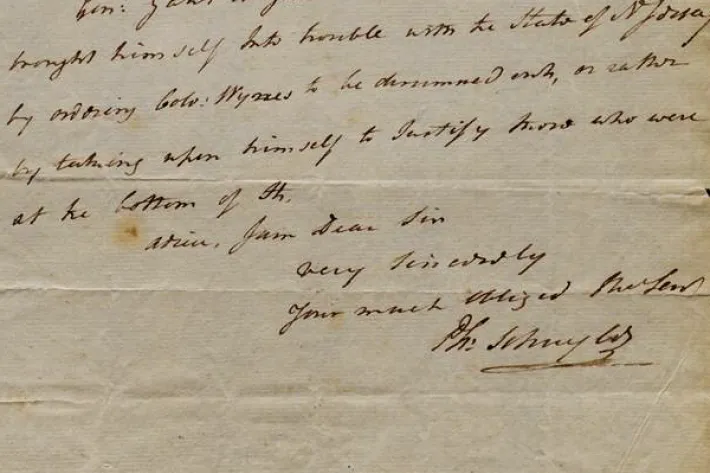 Gen: Gates
brought himself Into trouble with the State of N Jersey
by ordering Colo: Wynes to be drummed out, or rather
by taking upon himself to Justify those who were
at the bottom of It.
adieu, I am Dear Sir
very sincerely
Your much Obliged Hue Servt
Ph: Schuyler